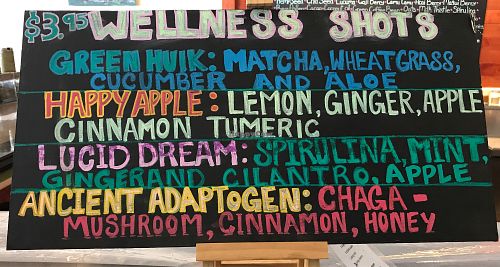 $3.95 WELLNESS SHOTS
GREEN HULK: MATCHA, WHEATGRASS,
CUCUMBER AND ALOE
HAPPY APPLE: LEMON, GINGER, APPLE
CINNAMON TUMERIC
LUCID DREAM: SPIRULINA, MINT,
GINGER AND CILANTRO, APPLE
ANCIENT ADAPTOGEN: CHAGA-
MUSHROOM, CINNAMON, HONEY